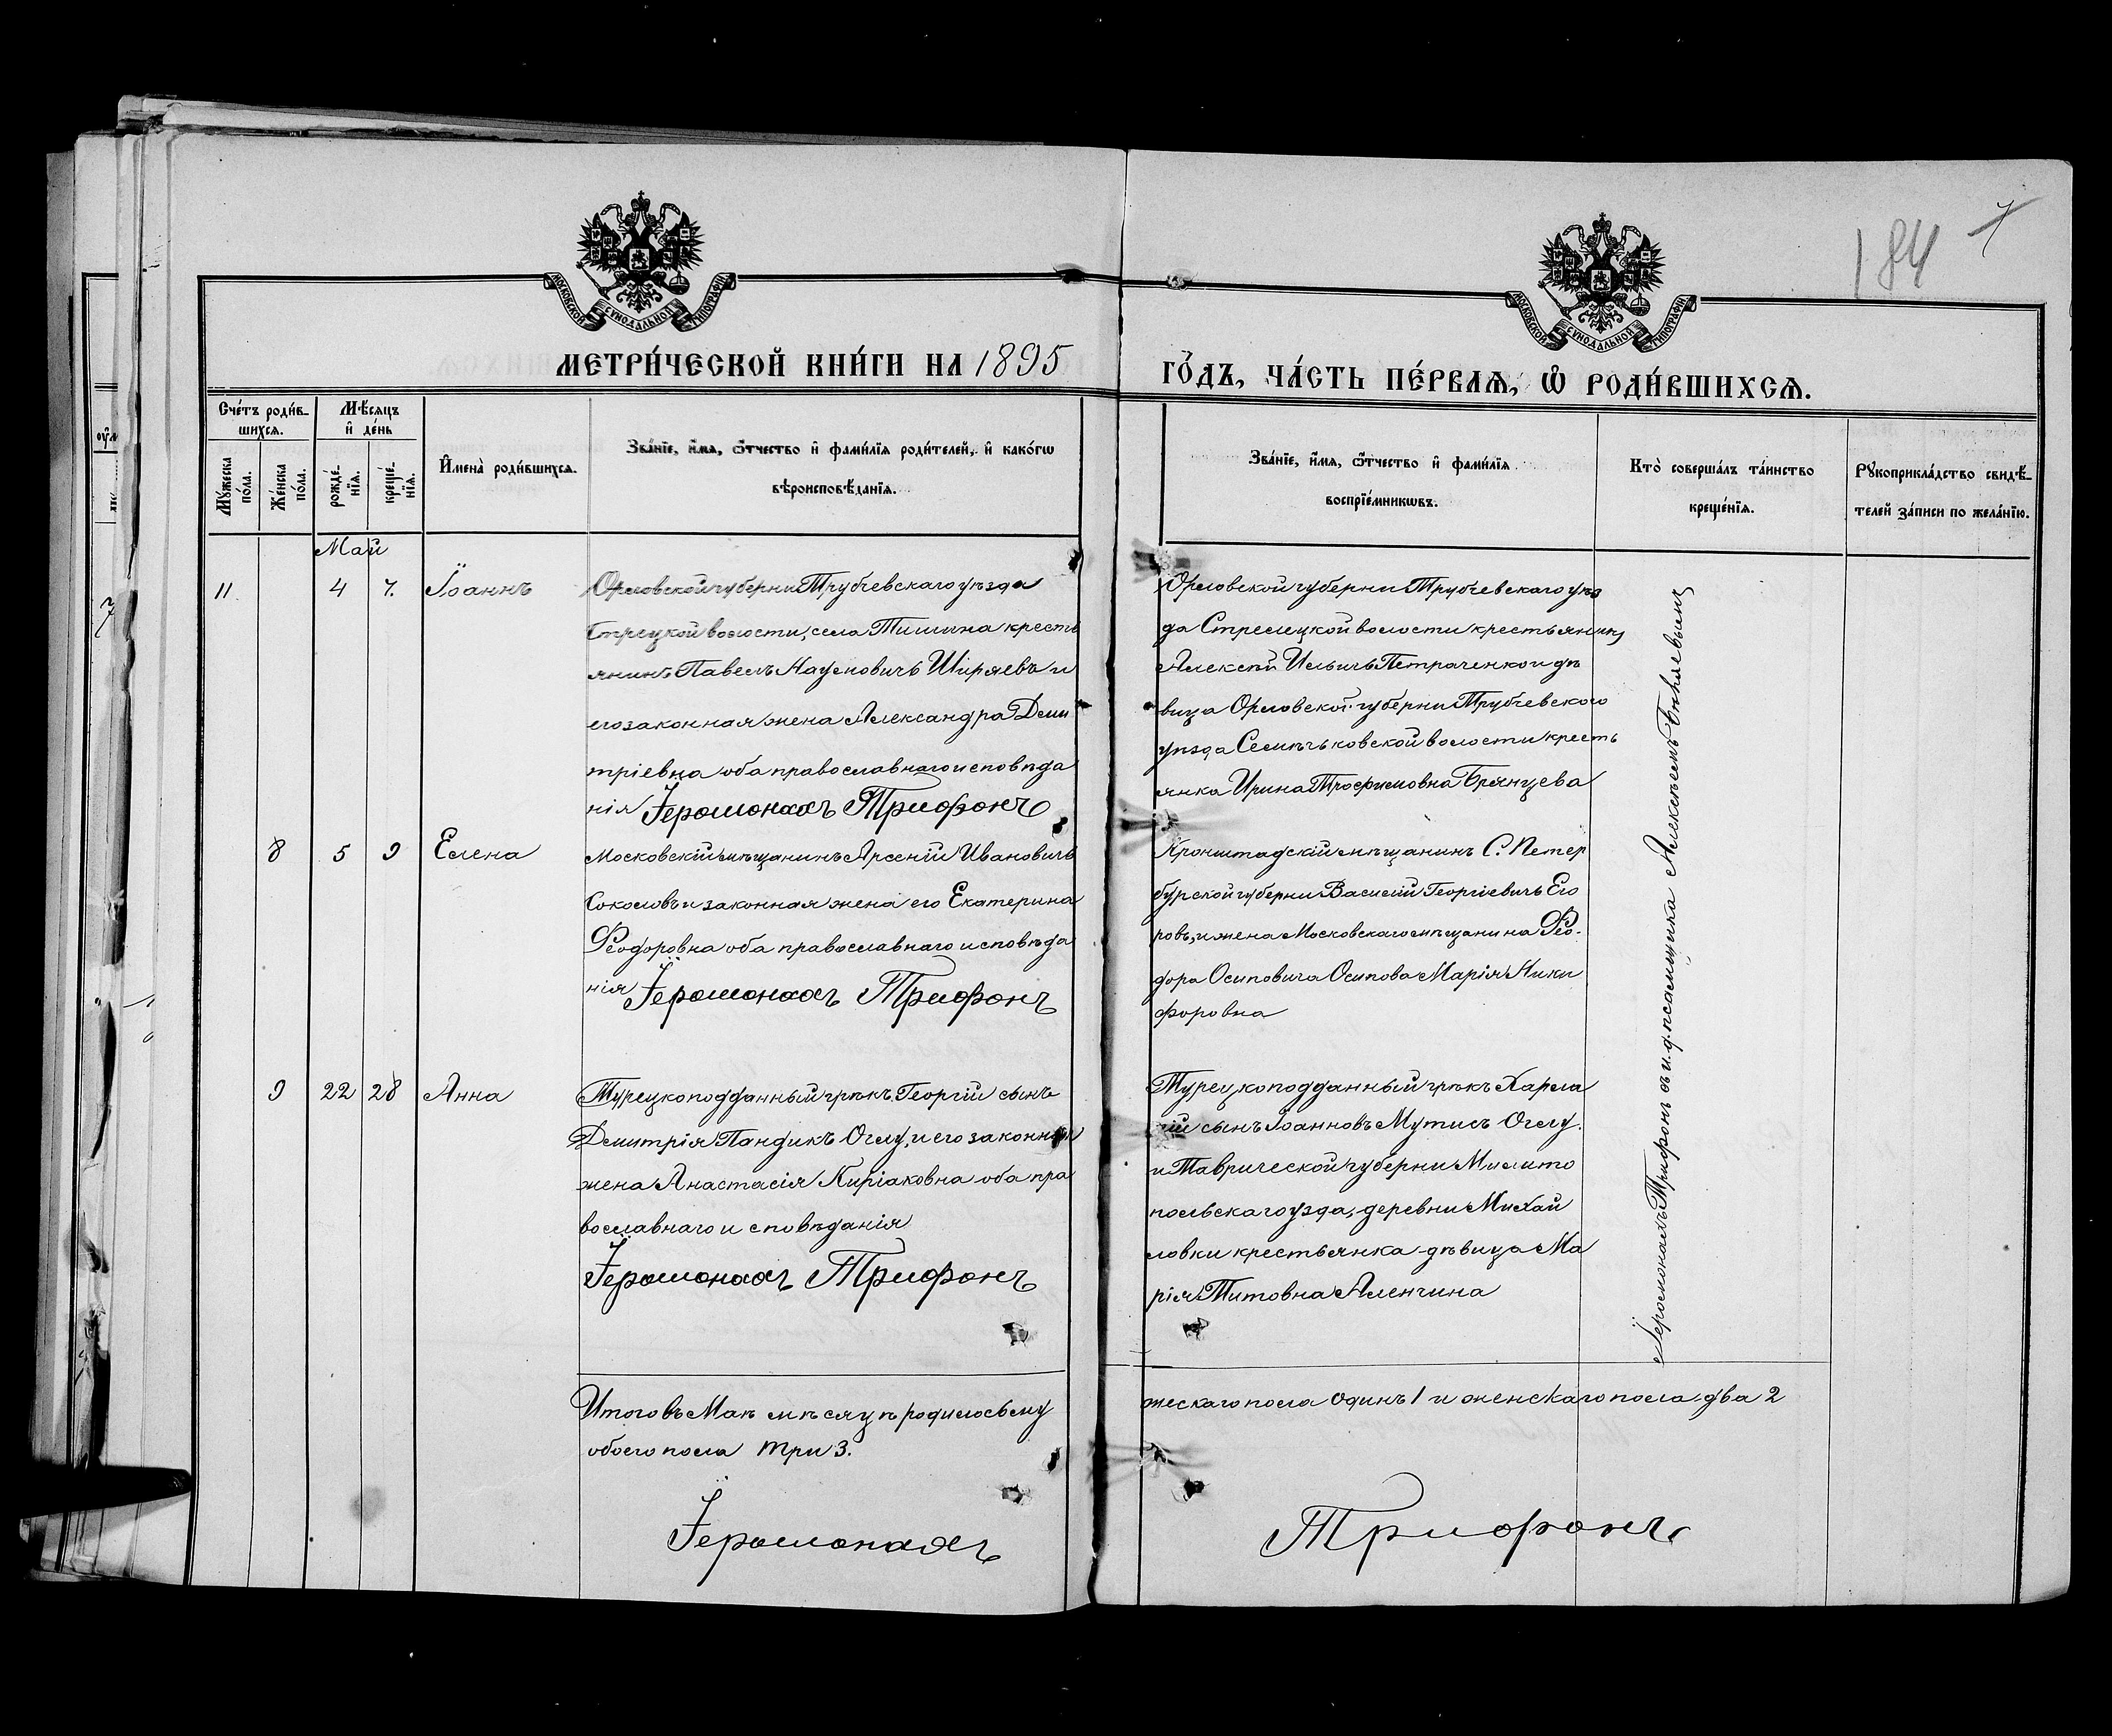 184
7
МОСКОВСКОЙ СѴНОДАЛЬНОЙ ТИПОГРАФІИ
МОСКОВСКОЙ СѴНОДАЛЬНОЙ ТИПОГРАФІИ
МЕТРИ́ЧЕСКОЙ КНИ́ГИ НА 1895
ГО́ДЪ, ЧА́СТЬ ПЕ́РВАѦ, Ѽ РОДИ́ВШИХСѦ.
Сче́тъ роди́в-
шихсѧ.
Мꙋ́жеска
по́ла.
Же́нска
по́ла.
Мѣ́сѧцъ
и҆ де́нь
рожде́-
нїѧ.
креще́-
нїѧ.
И҆мена̀ роди́вшихсѧ.
Зва́нїе, и҆́мѧ, ѻ҆́тчество и҆ фами́лїѧ роди́телей, и҆ како́гѡ
вѣроисповѣ́данїѧ.
Зва́нїе, и҆́мѧ, ѻ҆́тчество и҆ фами́лїѧ
воспрїе́мникѡвъ.
Кто̀ соверша́лъ та́инство
креще́нїѧ.
Рꙋкоприкла́дство свидѣ́-
телей за́писи по жела́нїю.
Май
11. 4 7. Іоаннъ
Орловской губерни Трубчевскаго уѣзда
Стрецкой волости, села Тишина кресть
янинъ Павелъ Наумовичъ Ширяевъ и
его законная жена Александра Дими
тріевна оба православнаго исповѣда
нія Іеромонахъ Трифонъ
Орловской губерни Трубчевскаго уѣз
да Стрелецкой волости крестьянинъ
Алексѣй Ильичъ Петраченко и дѣ
вица Орловской губерни Трубчевского
уѣзда Селичьковской волости кресть
янка Ирина Трофимовна Брянцева
8 5 9 Елена
Московскій мѣщанинъ Арсеній Ивановичъ
Соколовъ и законная жена его Екатерина
Феодоровна оба православнаго исповѣда
нія Іеромонахъ Трифонъ
Кронштадскій мѣщанинъ С. Петер
бурской губерни Василій Георгіевичъ Его
ровъ, и жена Московскаго мѣщанина Фео-
дора Осиповича Осипова Марія Ники
форовна
9 22 28 Анна
Турецкоподданный грѣкъ Георгій сынъ
Димитрія Пандикъ Оглу, и его законная
жена Анастасія Киріаковна оба пра
вославнаго исповѣданія
Іеромонахъ Трифонъ
Турецкоподданный грѣкъ Харла
пій сынъ Іоанновъ Мутисъ Оглу.
и Таврической губерни Мелито
польскаго узда, деревни Михай
ловки крестьянка дѣвица Ма
рія Титовна Аленчина
Іеромонахъ Трифонъ съ и. д. псаломщика Алексѣемъ
Итого въ Маѣ мѣсяцѣ родилось му
жескаго пола одинъ 1 и женскаго пола два 2
обоего пола три 3.
Іеромонахъ
Трифонъ